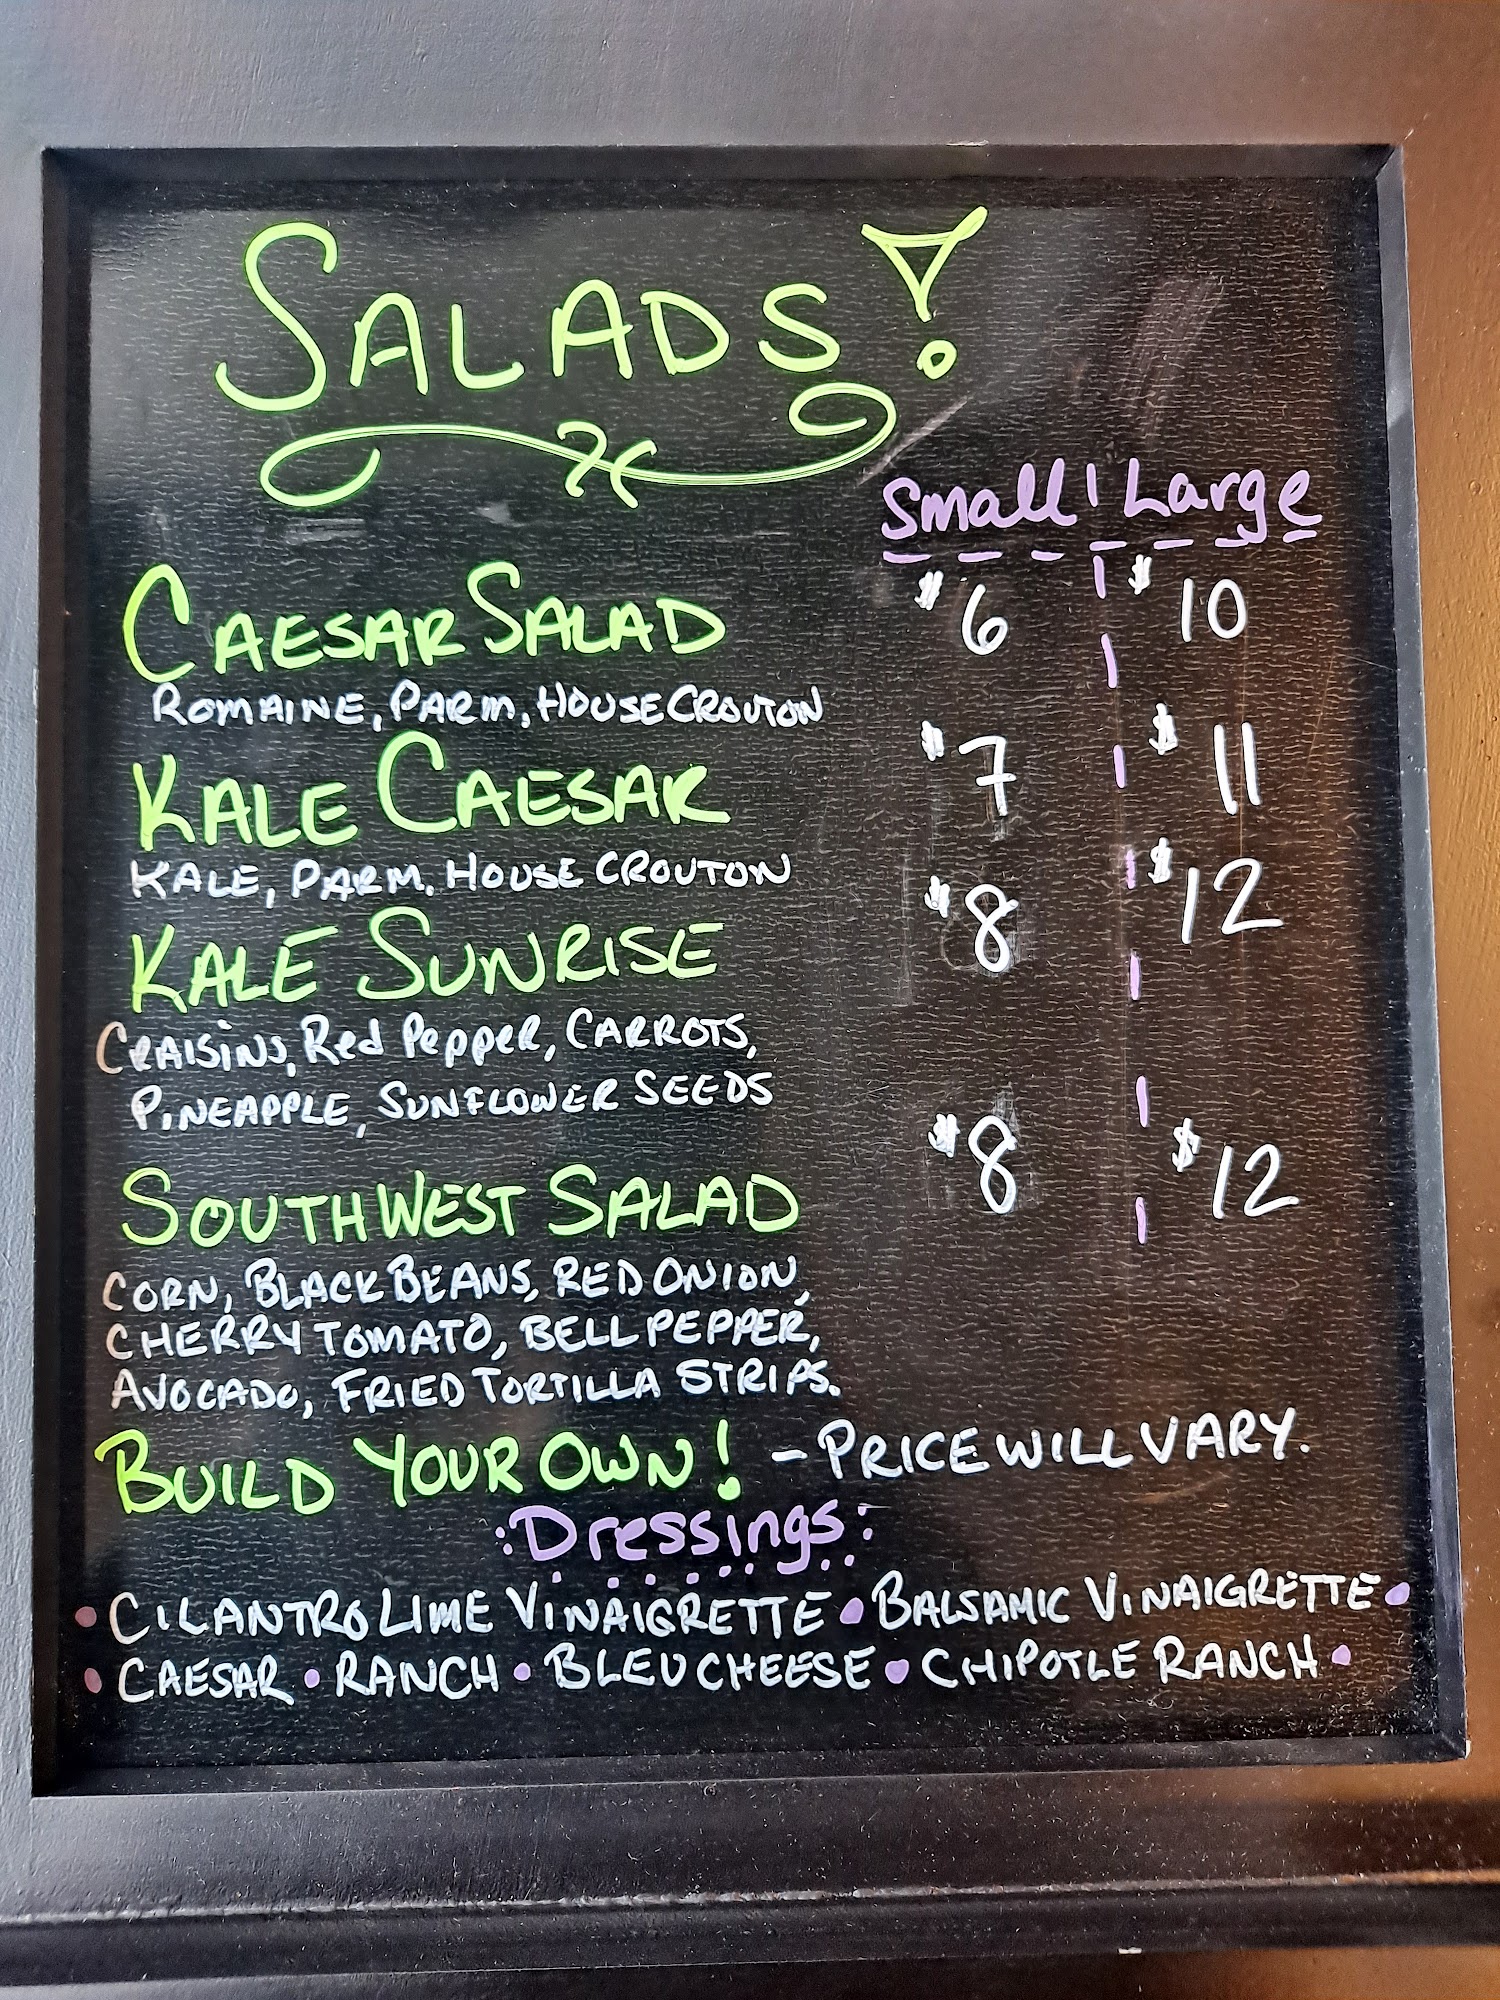 SALADS!
Small | Large
CAESAR SALAD $6 $10
ROMAINE, PARM, HOUSE CROUTON
KALE CAESAR $7 $11
KALE, PARM, HOUSE CROUTON
KALE SUNRISE $8 $12
CRAISINS, Red Pepper, CARROTS,
PINEAPPLE, SUNFLOWER SEEDS
SOUTHWEST SALAD $8 $12
CORN, BLACK BEANS, RED ONION,
CHERRY TOMATO, BELL PEPPER,
AVOCADO, FRIED TORTILLA STRIPS.
BUILD YOUR OWN! - PRICE WILL VARY.
:Dressings:
• CILANTRO LIME VINAIGRETTE • BALSAMIC VINAIGRETTE •
• CAESAR • RANCH • BLEU CHEESE • CHIPOTLE RANCH •